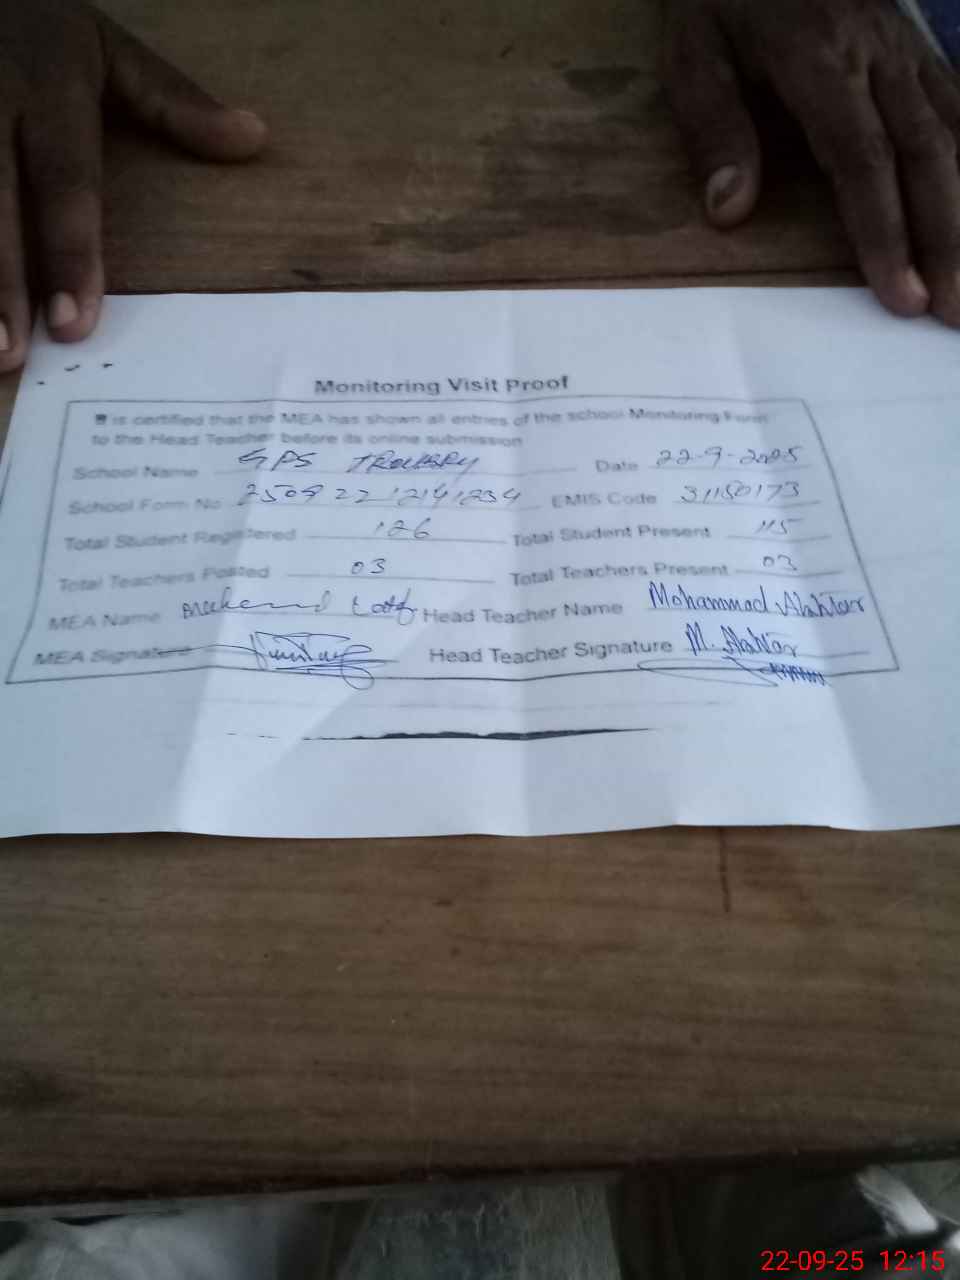 Monitoring Visit Proof
It is certified that the MEA has shown all entries of the school Monitoring Form
to the Head Teacher before its online submission
School Name GPS Date 22-9-2025
School Form No EMIS Code 31150173
Total Student Registered 126 Total Student Present 115
Total Teachers Posted 03 Total Teachers Present 03
MEA Name Head Teacher Name Mohammad
MEA Signature Head Teacher Signature M.
22-09-25 12:15